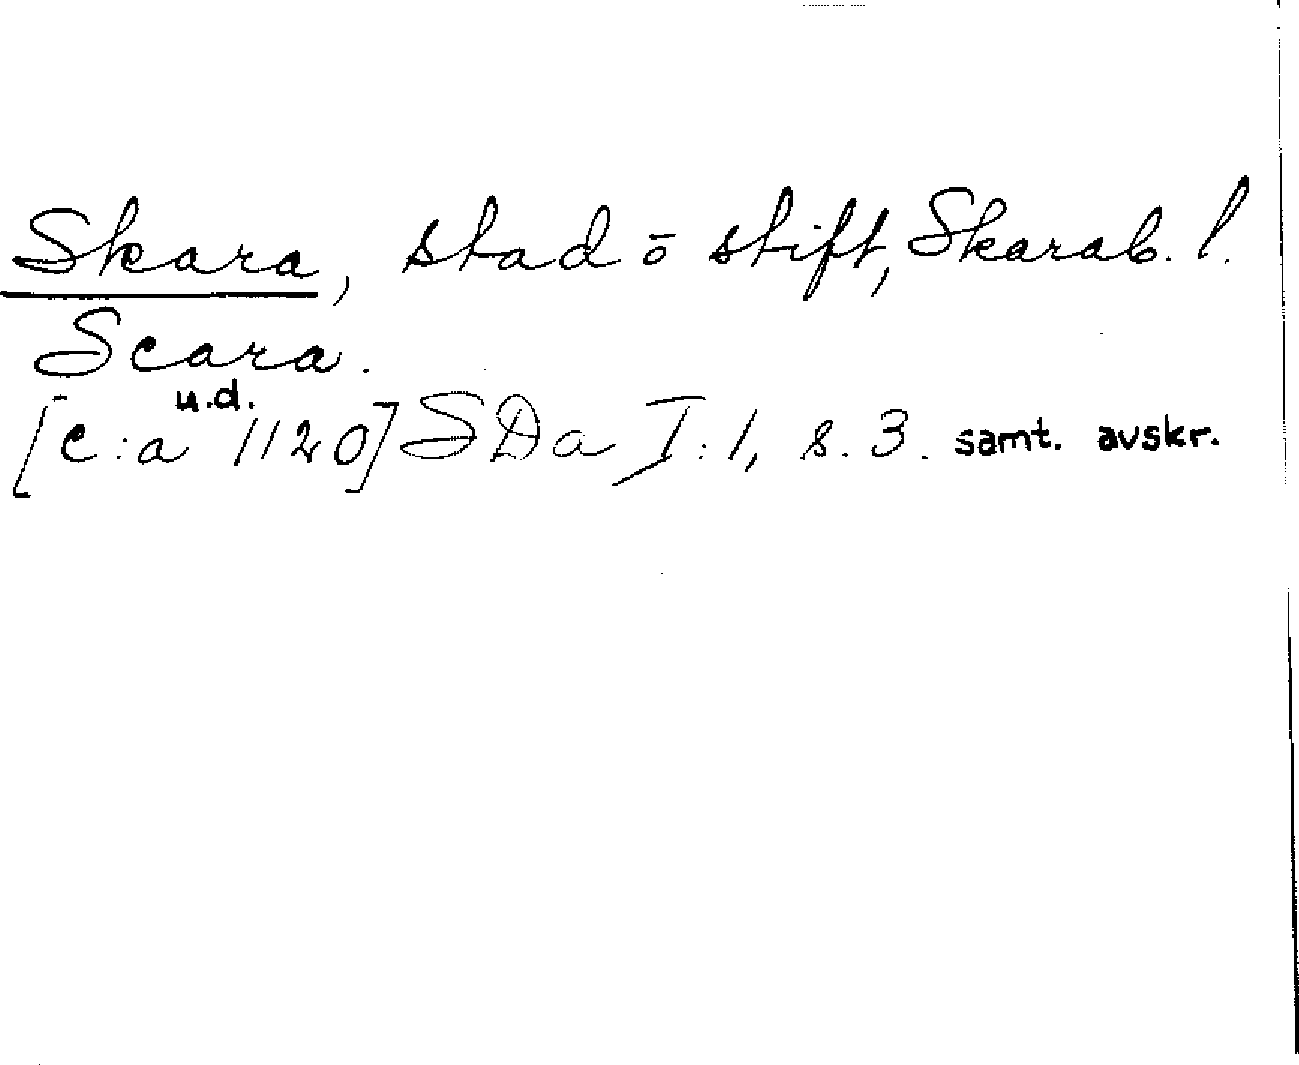 Skara, stad ō stift, Skarab. l.
Scara.
u.d.
[c:a 1120] SDa I:1, s. 3. samt. avskr.